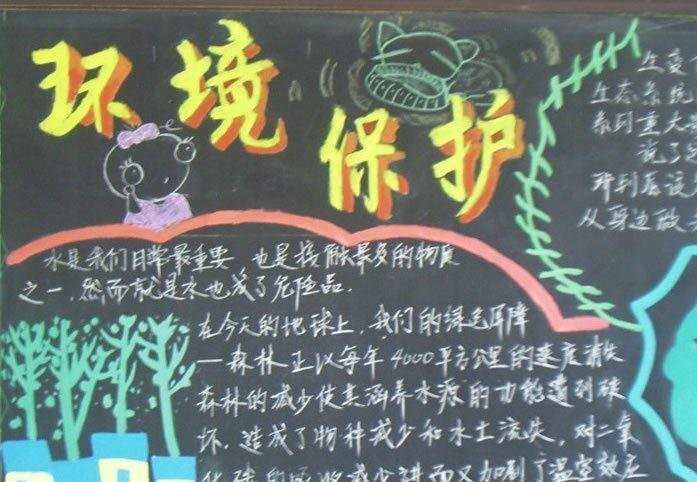 环境保护
水是我们日常最重要 也是接触最多的物质
之一,然而就是水也成了危险品.
在今天的地球上,我们的绿色屏障
—森林正以每年4000平方公里的速度消失
森林的减少使其涵养水源的功能遭到破
坏,造成了物种减少和水土流失,对二氧
化碳的吸收减少进而又加剧了温室效应
生态系统
系列重大
从身边做